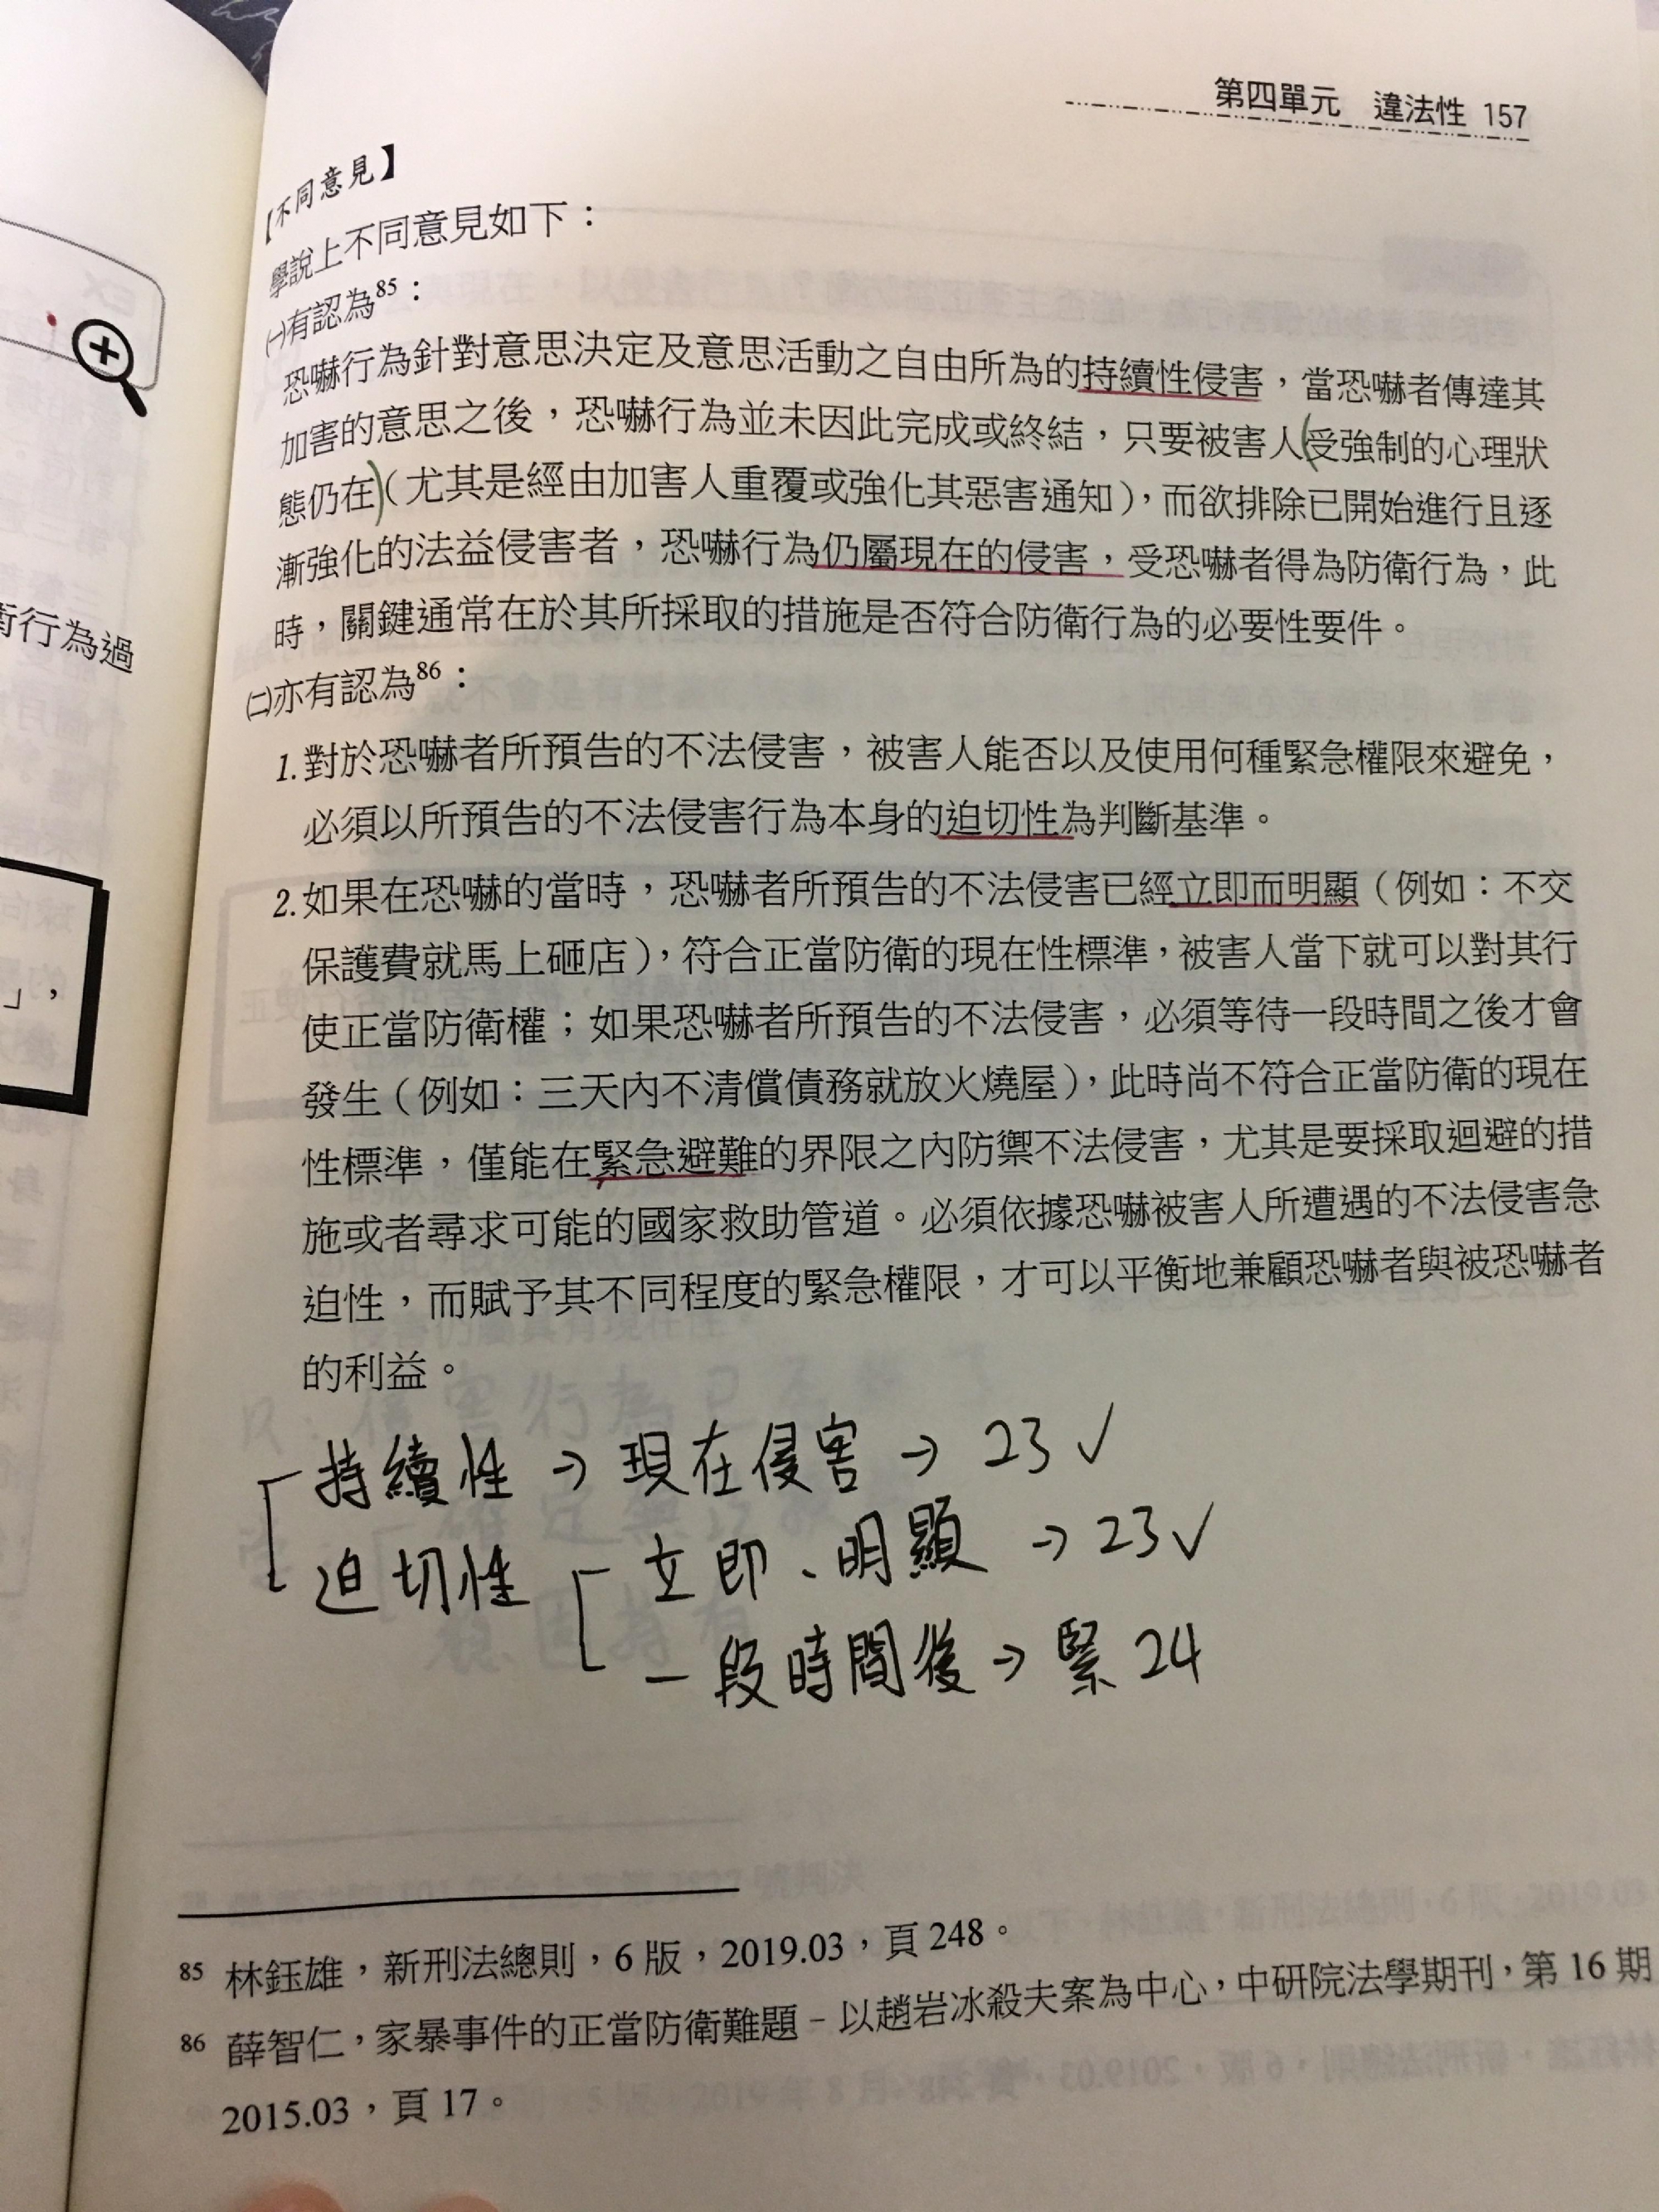 第四單元 違法性 157
【不同意見】
學說上不同意見如下：
㈠有認為85：
恐嚇行為針對意思決定及意思活動之自由所為的持續性侵害，當恐嚇者傳達其
加害的意思之後，恐嚇行為並未因此完成或終結，只要被害人(受強制的心理狀
態仍在)（尤其是經由加害人重覆或強化其惡害通知），而欲排除已開始進行且逐
漸強化的法益侵害者，恐嚇行為仍屬現在的侵害，受恐嚇者得為防衛行為，此
時，關鍵通常在於其所採取的措施是否符合防衛行為的必要性要件。
㈡亦有認為86：
1.對於恐嚇者所預告的不法侵害，被害人能否以及使用何種緊急權限來避免，
必須以所預告的不法侵害行為本身的迫切性為判斷基準。
2.如果在恐嚇的當時，恐嚇者所預告的不法侵害已經立即而明顯（例如：不交
保護費就馬上砸店），符合正當防衛的現在性標準，被害人當下就可以對其行
使正當防衛權；如果恐嚇者所預告的不法侵害，必須等待一段時間之後才會
發生（例如：三天內不清償債務就放火燒屋），此時尚不符合正當防衛的現在
性標準，僅能在緊急避難的界限之內防禦不法侵害，尤其是要採取迴避的措
施或者尋求可能的國家救助管道。必須依據恐嚇被害人所遭遇的不法侵害急
迫性，而賦予其不同程度的緊急權限，才可以平衡地兼顧恐嚇者與被恐嚇者
的利益。
持續性→現在侵害→23✓
迫切性 立即、明顯→23✓
一段時間後→緊24
85 林鈺雄，新刑法總則，6版，2019.03，頁248。
86 薛智仁，家暴事件的正當防衛難題－以趙岩冰殺夫案為中心，中研院法學期刊，第16期
2015.03，頁17。
衛行為過
」，